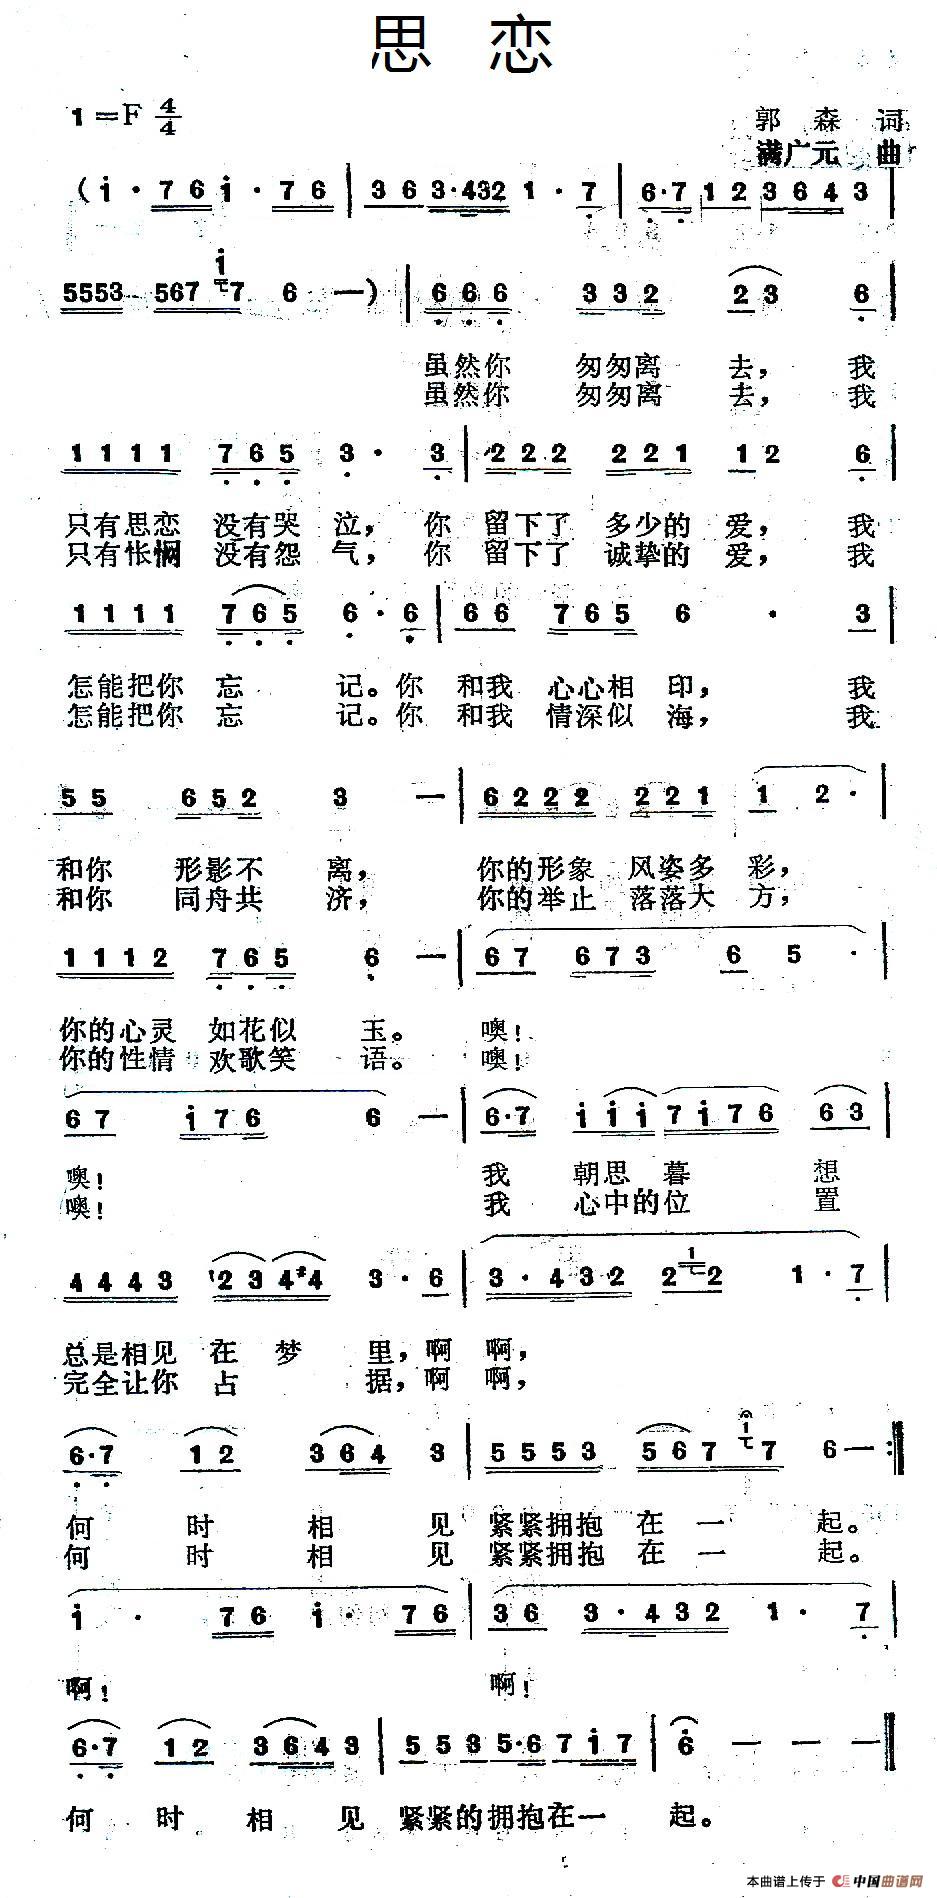 思 恋
1=F 4/4
郭 森 词
满广元 曲
(i·76i·76|363·4321·7|6·7123643
5553567i76—)|666332236
虽然你 匆匆离 去，我
虽然你 匆匆离 去，我
11117653·3|222221126
只有思恋 没有哭 泣，你 留下了 多少的 爱，我
只有怅惘 没有怨 气，你 留下了 诚挚的 爱，我
11117656·6|667656·3
怎能把你 忘 记。你 和我 心心相 印，我
怎能把你 忘 记。你 和我 情深似 海，我
556523—|622222112·
和你 形影不 离，你的形象 风姿多 彩，
和你 同舟共 济，你的举止 落落大 方，
11127656—|6767365·
你的心灵 如花似 玉。噢！
你的性情 欢歌笑 语。噢！
67i766—|6·7iii7i7663
噢！ 我 朝思 暮 想
噢！ 我 心中的位 置
44431234#43·6|3·4322121·7
总是相见 在 梦 里，啊 啊，
完全让你 占 据，啊 啊，
6·7123643|5553567176—:
何 时 相 见 紧紧拥抱 在 一 起。
何 时 相 见 紧紧拥抱 在 一 起。
i·76i·76|363·4321·7
啊！ 啊！
6·7123643|55355·67i7|6———
何 时 相 见 紧紧的拥抱在一 起。
本曲谱上传于 中国曲谱网